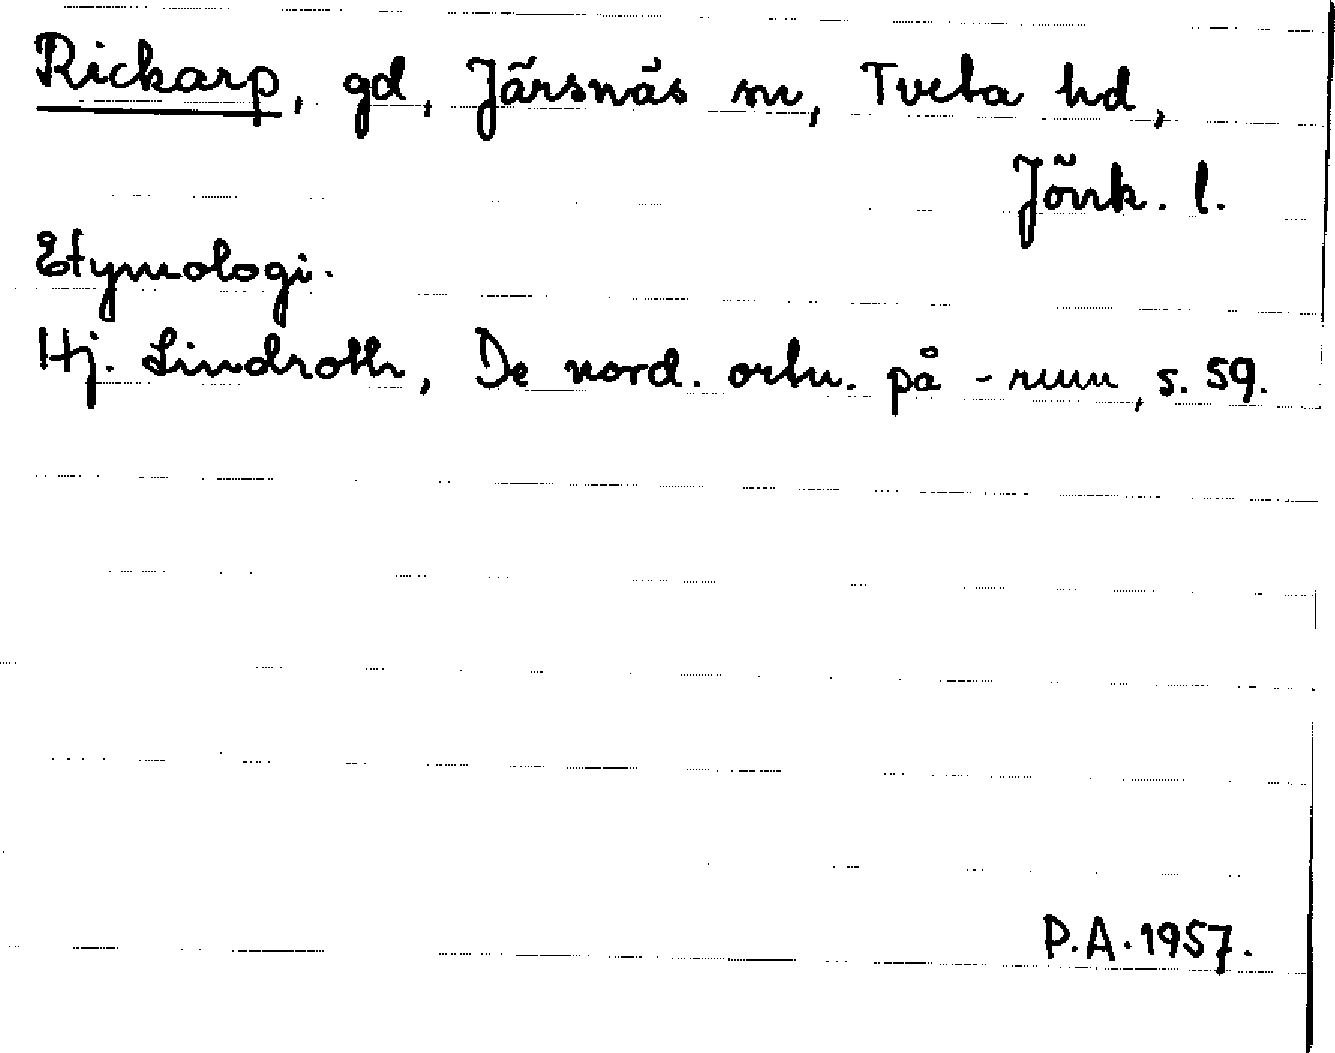 Rickarp, gd, Järsnäs sn, Tveta hd,
Jönk. l.
Etymologi.
Hj. Lindroth, De nord. ortn. på -rum, s. 59.
P.A. 1957.